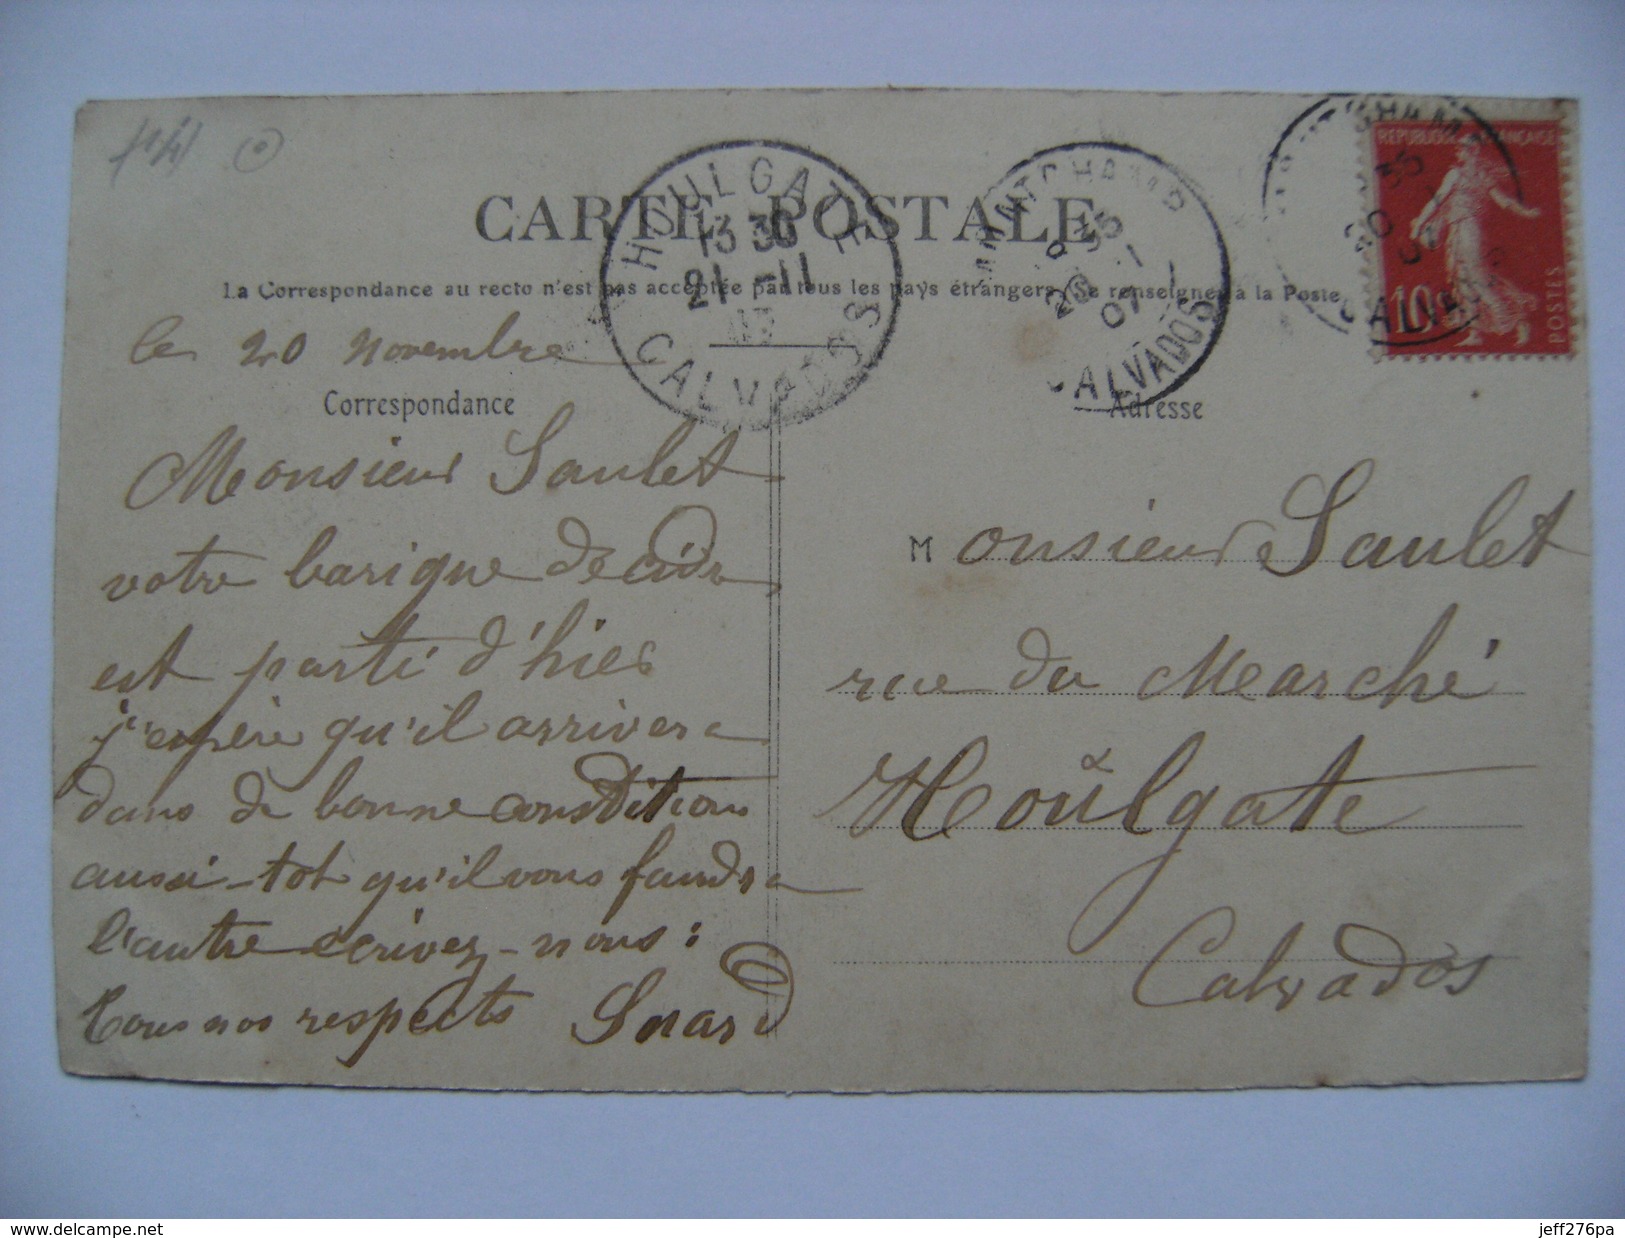 CARTE POSTALE
La Correspondance au recto n'est pas acceptée par tous les pays étrangers (Se renseigner à la Poste
HOULGATE
13 30
21 - 11
CALVADOS
MONTCHAMPS
35
20
07
CALVADOS
REPUBLIQUE FRANÇAISE
10c
POSTES
35
20
CALVADOS
le 20 novembre
Correspondance
Monsieur Saulet
votre barique de cidre
est parti d'hier
j'espère qu'il arrivera
dans de bonne conditions
aussi-tot qu'il vous faudra
l'autre écrivez-nous:
Tous nos respects Suard
Adresse
Monsieur Saulet
rue du Marché
Houlgate
Calvados
delcampe.net
jeff276pa